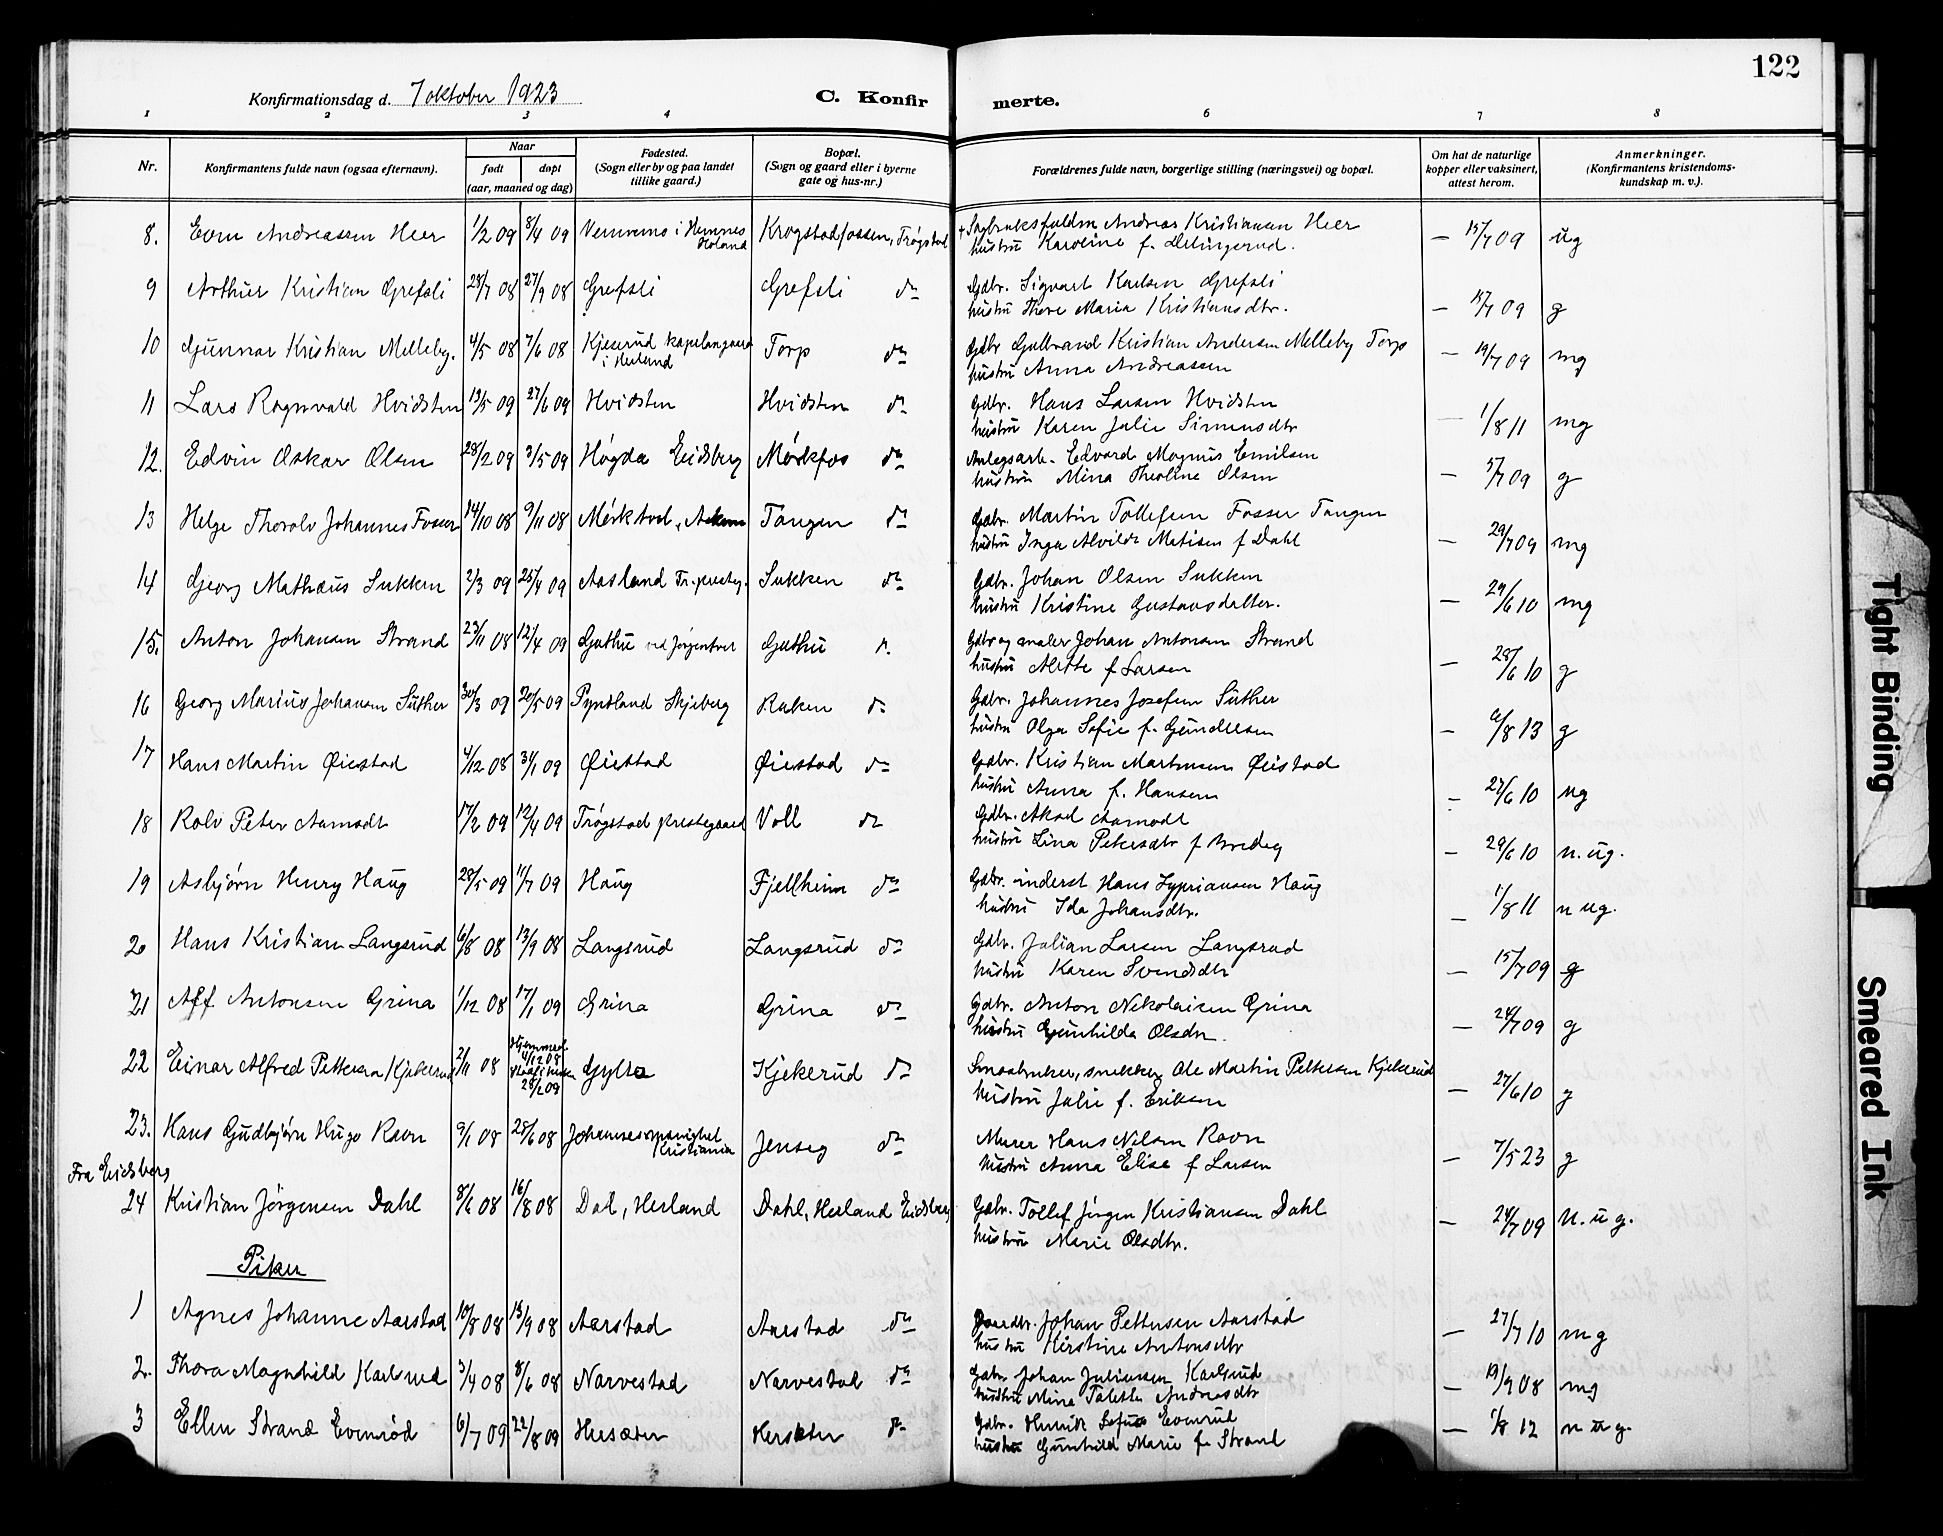 122
Konfirmationsdag d. 7 oktober 1923
C. Konfirmerte.
1 2 3 4 5 6 7 8
Nr.
Konfirmantens fulde navn (ogsaa efternavn).
Naar
født døpt
(aar, maaned og dag)
Fødested.
(Sogn eller by og paa landet
tillike gaard.)
Bopæl.
(Sogn og gaard eller i byerne
gate og hus-nr.)
Forældrenes fulde navn, borgerlige stilling (næringsvei) og bopæl.
Om hat de naturlige
kopper eller vaksinert,
attest herom.
Anmerkninger.
(Konfirmantens kristendoms-
kundskap m. v.).
8. Andreassen Heer 1/2 09 8/4 09 i Hemnes Krogstadfossen, Trøgstad Andreas Kristiansen Heer — 15/7 09 ug
Høland hustru Karoline f.
9 Arthur Kristian Grefsli 28/7 08 27/9 08 Grefsli Grefsli do Gdbr. Sigvart Karlsen Grefsli
hustru Maria Kristiansdtr. — 15/7 09 g
10 Gunnar Kristian Melleby. 4/5 08 7/6 08 Kjeserud kapelangaard Torp do Gdbr Gulbrand Kristian Andersen Melleby Torp — 19/7 09 mg
i Herland hustru Anna Andreassen
11 Lars Ragnvald Hvidsten 13/5 09 27/6 09 Hvidsten Hvidsten do Gdbr. Hans Larsen Hvidsten
hustru Karen Julie Simensdtr — 1/8 11 mg
12. Edvin Oskar Olsen 28/2 09 3/5 09 Høgda Eidsberg Mørkfos do Anlegsarb. Edvard Magnus Emilsen
hustru Mina Theoline Olsen — 5/7 09 g
13 Helge Thorolv Johannes Fosser 14/10 08 9/11 08 Tangen do Gdbr. Martin Tollefsen Fosser Tangen
hustru Inga Alvilde Matisen f Dahl — 29/7 09 mg
14 Georg Mathæus Sukken 2/3 09 25/4 09 Aasland Tr. presteg. Sukken do Gdbr. Johan Olsen Sukken
hustru Kristine Gustavsdatter. — 29/6 10 mg
15. Anton Johansen Strand 23/11 08 12/4 09 Guthu ved Guthu d. Gdbr og maler Johan Antonsen Strand
hustru f Larsen — 28/6 10 g
16 Georg Marius Johansen Suther 30/3 09 20/5 09 Skjeberg Raken do Gdbr. Johannes Josefsen Suther
hustru Olga Sofie f. Gundersen — /8 13 g
17 Hans Martin Øiestad 4/12 08 31/1 09 Øiestad Øiestad do Gdbr. Kristian Martinsen Øistad
hustru Anna f. Hansen — 27/6 10 ug
18 Rolv Peter Aamodt 17/2 09 12/4 09 Trøgstad prestegaard Voll do Gdbr. Aksel Aamodt
hustru Lina Petersdtr f — 29/6 10 n.ug.
19 Asbjørn Henry Haug 28/5 09 11/7 09 Haug Fjellheim do Gdbr. inderst Hans Sypriansen Haug
hustru Ida Johansdtr. — 1/8 11 n ug.
20 Hans Kristian Langsrud 6/8 08 13/9 08 Langsrud Langsrud do Gdbr. Julian Larsen Langsrud
hustru Karen Svendsdtr — 15/7 09 g
21 Alf Antonsen Grina 1/12 08 17/1 09 Grina Grina do Gdbr. Anton Nikolaisen Grina
hustru Gunhilda Olsdtr. — 24/7 09 g
22 Einar Alfred Pettersen Kjekerud 2/11 08 Hjemmed. 4/12 08 28/2 09 Gylta Kjekerud do Smaabruker, snekker Ole Martin Pettersen Kjekerud
hustru Julie f. Eriksen — 27/6 10 g
23. Hans Gudbjørn Hugo Ravn 9/1 08 28/6 08 Johannesmenighet Jenseg do Murer Hans Nilsen Ravn
Kristiania hustru Anna Elise f Larsen — 7/5 23 g
Fra Eidsberg
24 Kristian Jørgensen Dahl 8/6 08 16/8 08 Dal, Herland Dahl, Herland Eidsberg Gdbr. Tollef Jørgen Kristiansen Dahl
hustru Marie Olsdtr. — 24/7 09 n.ug.
Piker
1 Agnes Johanne Aarstad 10/8 08 13/9 08 Aarstad Aarstad do Johan Pettersen Aarstad
hustru Kirstine Antonsdtr — 27/7 10 mg
2. Thora Magnhild Karlsrud 3/4 08 8/6 08 Narvestad Narvestad do Gdbr Johan Juliussen Karlsrud
hustru Mina Andreasdtr — 19/9 08 mg
3 Ellen Strand Evenrød 6/7 09 22/8 09 do Gdbr.
hustru Gunhild Marie f. Strand — 1/8 12 n ug.
Tight Binding
Smeared Ink